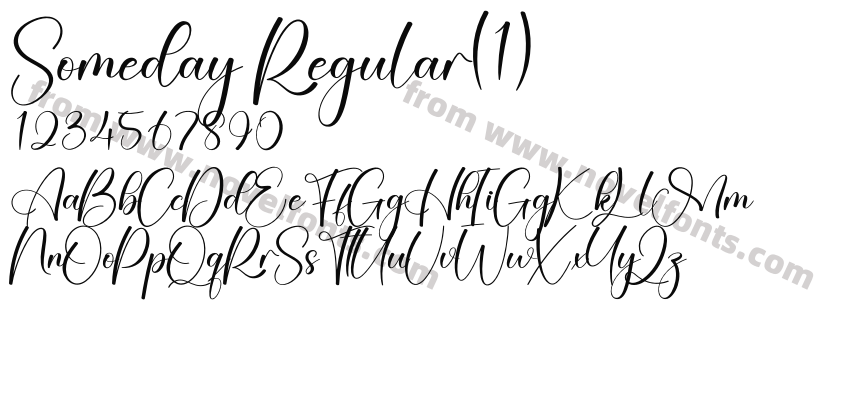 Someday Regular(1)
1234567890
AaBbCcDdEeFfGgHhIiGgKkLlMm
NnOoPpQqRrSsTtUuVvWwXxYyZz
from www.novelfonts.com
from www.novelfonts.com